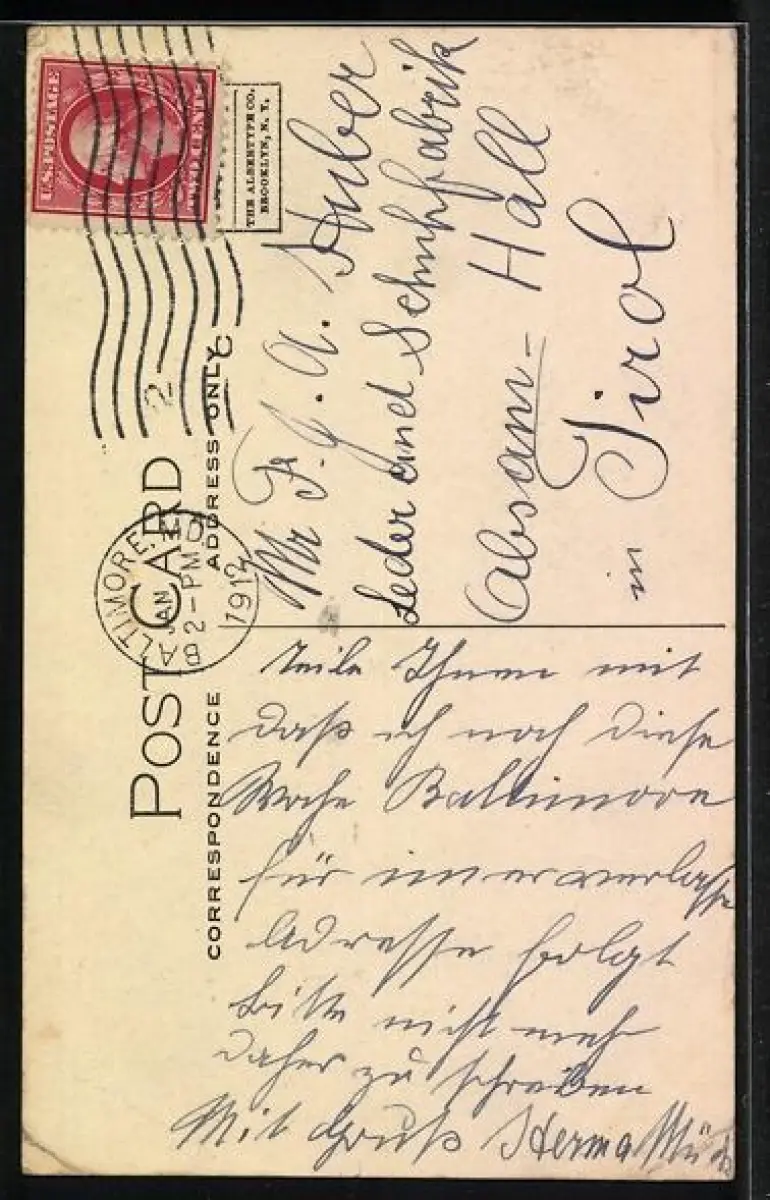 U.S. POSTAGE
TWO CENTS
THE ALBERTYPE CO.
BROOKLYN, N. Y.
POST CARD
BALTIMORE, MD
JAN
2-PM
1912
2
C
CORRESPONDENCE
ADDRESS ONLY
Mr F. J. A. Huber
Leder und Schuhfabrik
Absam - Hall
in Tirol
Teile Ihnen mit
daß ich noch diese
Woche Baltimore
für immer verlasse
Adresse folgt
bitte nicht mehr
daher zu schreiben
Mit Gruß Herma